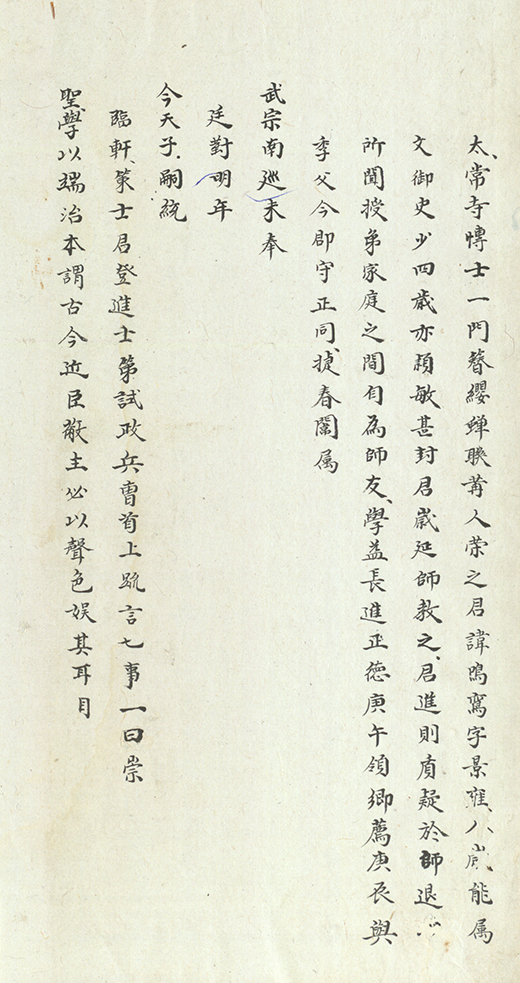 太常寺博士一門簪纓蟬聯冓人荣之君諱鳴鸞字景雍八歲能属
文御史少四歲亦穎敏甚封君歲延師教之君進則質疑於師退以
所聞授弟家庭之間自為師友學益長進正德庚午領鄉薦庚辰與
季父今郎守正同捷春闈属
武宗南巡未奉
廷對明年
今天子嗣統
臨軒策士君登進士第試政兵曹首上疏言七事一曰崇
聖學以端治本謂古今近臣敝主必以聲色娛其耳目